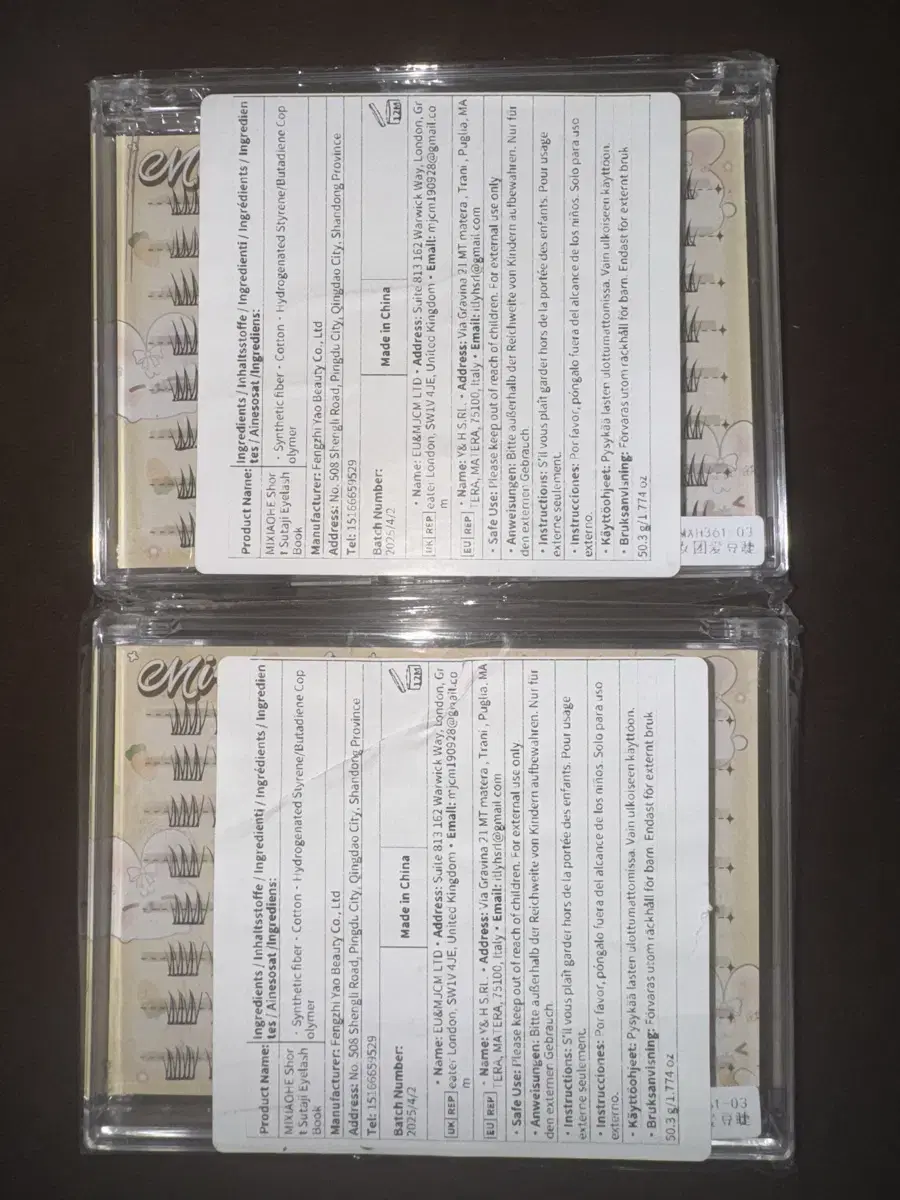 Mi
Product Name:
MIXIAOHE Shor
t Sutaji Eyelash
Book
Ingredients / Inhaltsstoffe / Ingredienti / Ingrédients / Ingredien
tes / Ainesosat /Ingrediens:
· Synthetic fiber · Cotton · Hydrogenated Styrene/Butadiene Cop
olymer
Manufacturer: Fengzhi Yao Beauty Co., Ltd
Address: No. 508 Shengli Road, Pingdu City, Qingdao City, Shandong Province
Tel: 15166659529
Batch Number:
2025/4/2
Made in China
12M
UK REP
• Name: EU&MJCM LTD • Address: Suite 813 162 Warwick Way, London, Gr
eater London, SW1V 4JE, United Kingdom • Email: mjcm190928@gmail.co
m
EU REP
• Name: Y& H S.RL. • Address: Via Gravina 21 MT matera , Trani , Puglia, MA
TERA, MATERA, 75100, Italy • Email: itlyhsrl@gmail.com
• Safe Use: Please keep out of reach of children. For external use only
• Anweisungen: Bitte außerhalb der Reichweite von Kindern aufbewahren. Nur für
den externen Gebrauch
• Instructions: S'il vous plaît garder hors de la portée des enfants. Pour usage
externe seulement.
• Instrucciones: Por favor, póngalo fuera del alcance de los niños. Solo para uso
externo.
• Käyttöohjeet: Pysykää lasten ulottumattomissa. Vain ulkoiseen käyttöön.
• Bruksanvisning: Förvaras utom räckhåll för barn. Endast för externt bruk
50.3 g/1.774 oz
Mi
Product Name:
MIXIAOHE Shor
t Sutaji Eyelash
Book
Ingredients / Inhaltsstoffe / Ingredienti / Ingrédients / Ingredien
tes / Ainesosat /Ingrediens:
· Synthetic fiber · Cotton · Hydrogenated Styrene/Butadiene Cop
olymer
Manufacturer: Fengzhi Yao Beauty Co., Ltd
Address: No. 508 Shengli Road, Pingdu City, Qingdao City, Shandong Province
Tel: 15166659529
Batch Number:
2025/4/2
Made in China
12M
UK REP
• Name: EU&MJCM LTD • Address: Suite 813 162 Warwick Way, London, Gr
eater London, SW1V 4JE, United Kingdom • Email: mjcm190928@gmail.co
m
EU REP
• Name: Y& H S.RL. • Address: Via Gravina 21 MT matera , Trani , Puglia, MA
TERA, MATERA, 75100, Italy • Email: itlyhsrl@gmail.com
• Safe Use: Please keep out of reach of children. For external use only
• Anweisungen: Bitte außerhalb der Reichweite von Kindern aufbewahren. Nur für
den externen Gebrauch
• Instructions: S'il vous plaît garder hors de la portée des enfants. Pour usage
externe seulement.
• Instrucciones: Por favor, póngalo fuera del alcance de los niños. Solo para uso
externo.
• Käyttöohjeet: Pysykää lasten ulottumattomissa. Vain ulkoiseen käyttöön.
• Bruksanvisning: Förvaras utom räckhåll för barn. Endast för externt bruk
50.3 g/1.774 oz